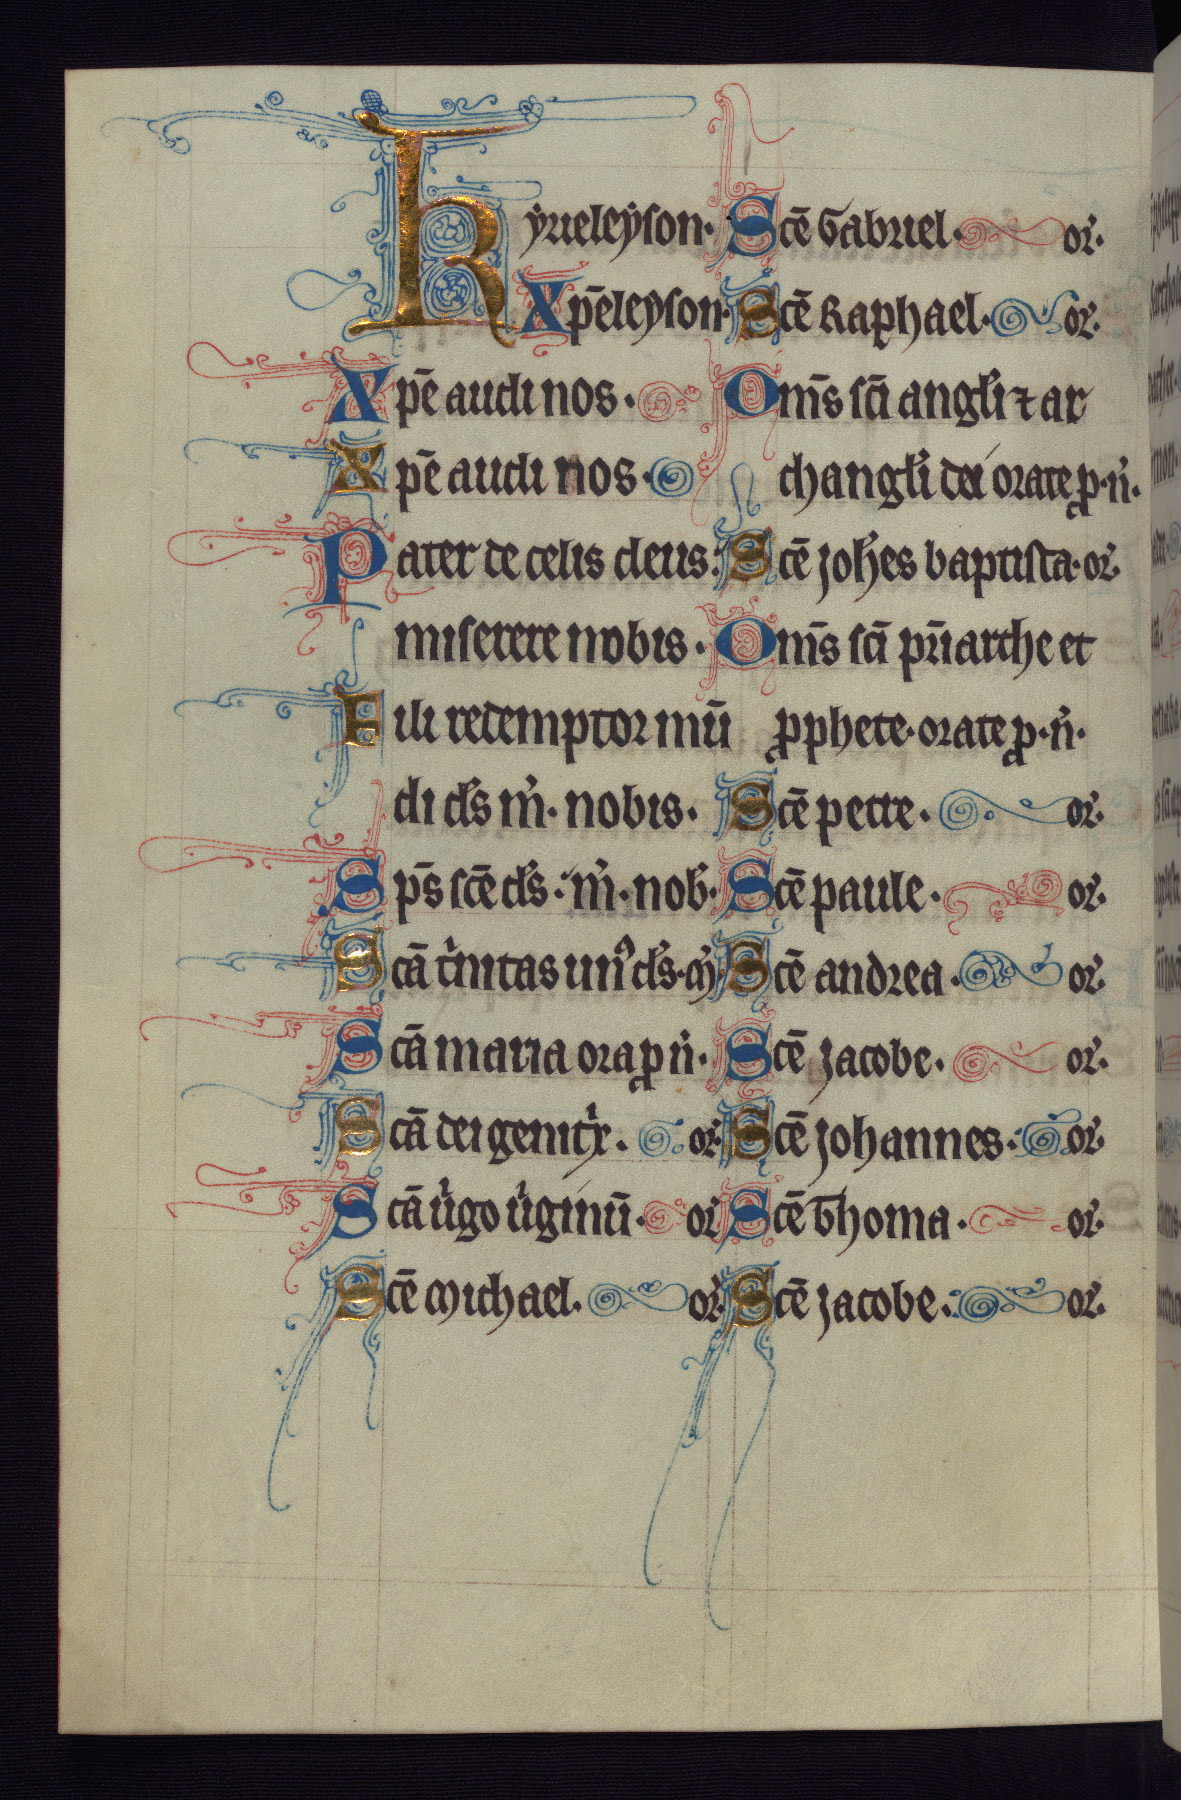 Kẏrieleẏson·
Xp̄eleẏson·
Xp̄e audi nos·
Xp̄e audi nos·
Pater de celis deus:
miserere nobis·
Fili redemptor mū
di ds̄ m̄· nobis·
Sp̄s sc̄e ds̄· m̄· nob̄·
Sc̄a t̍nitas un᾿ ds̄·m̄·
Sc̄a maria ora ꝑ n̄·
Sc̄a dei genit̍x· or̄
Sc̄a v̍go v̍ginū· or̄
Sc̄e Michael· or̄
Sc̄e Gabriel· or̄·
Sc̄e Raphael· or̄·
Om̄s sc̄i angl̄i ⁊ ar
changl̄i dei orate ꝓ·n̄·
Sc̄e joh̄es baptista· or̄
Om̄s sc̄i pr̄iarche et
ꝓphete· orate ꝓ·n̄·
Sc̄e petre· or̄·
Sc̄e paule· or̄·
Sc̄e andrea· or̄·
Sc̄e jacobe· or̄·
Sc̄e johannes· or̄
Sc̄e Thoma· or̄·
Sc̄e jacobe· or̄·